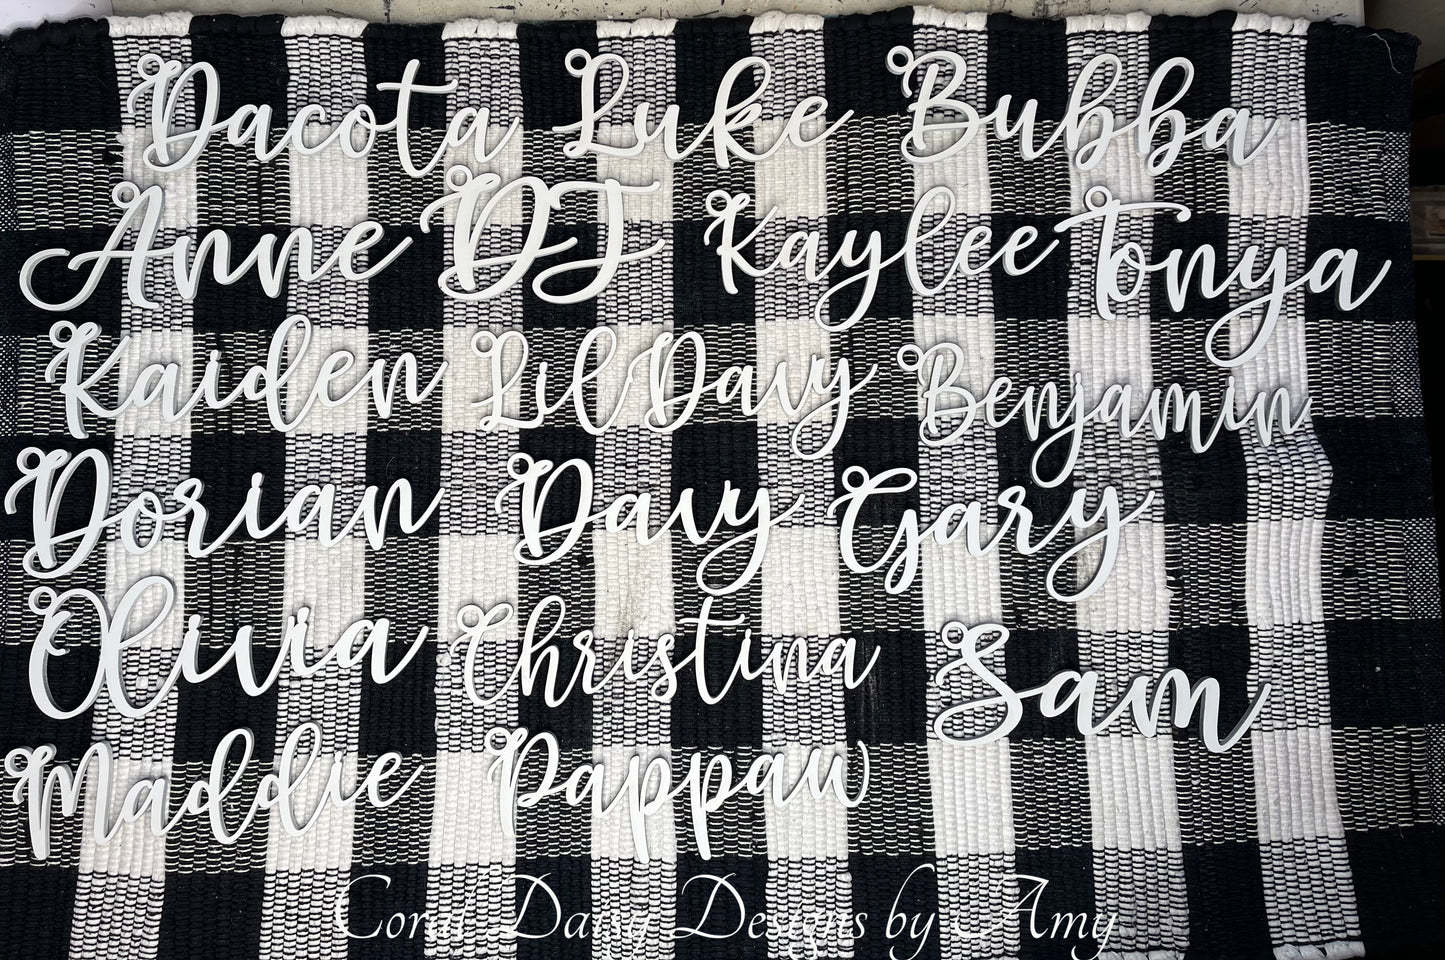 Dacota Luke Bubba
Anne DJ Kaylee Tonya
Kaiden Lil Davy Benjamin
Dorian Davy Gary
Olivia Christina Sam
Maddie Pappaw
Coral Daisy Designs by Amy